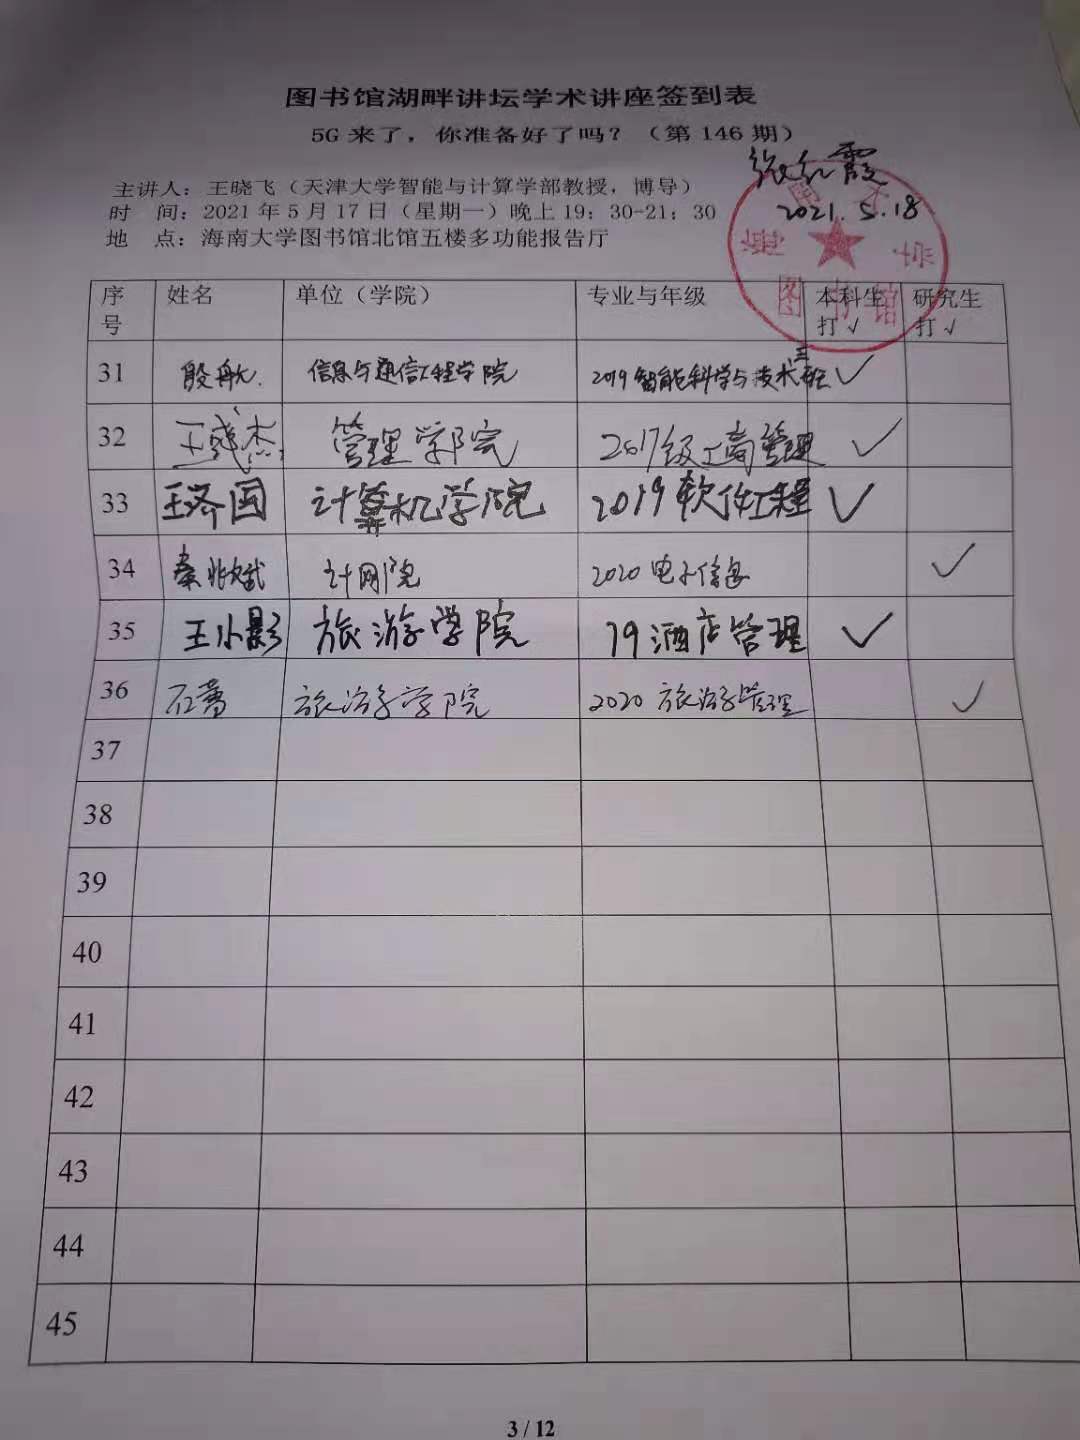 图书馆湖畔讲坛学术讲座签到表
5G 来了，你准备好了吗？（第 146 期）
霞
2021.5.18
主讲人：王晓飞（天津大学智能与计算学部教授，博导）
时 间：2021 年 5 月 17 日（星期一）晚上 19：30-21：30
地 点：海南大学图书馆北馆五楼多功能报告厅
海南大学
图书馆
序号 姓名 单位（学院） 专业与年级 本科生打√ 研究生打√
31 殷航 信息与通信工程学院 2019智能科学与技术三班 √
32 王 杰 管理学院 2017级工商管理 √
33 王济国 计算机学院 2019软件工程 √
34 秦 斌 计网院 2020电子信息 √
35 王小影 旅游学院 19酒店管理 √
36 石 旅游学院 2020旅游管理 √
37
38
39
40
41
42
43
44
45
3 / 12